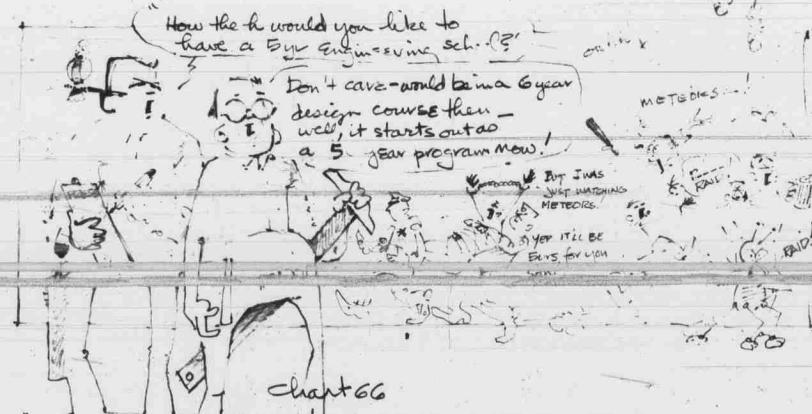 How the h would you like to
have a 5yr Engineering sch..l?
Don't care-would be in a 6 year
design course then-
well, it starts out as
a 5 year program now!
METEORS
RAID
BUT I WAS
JUST WATCHING
METEORS.
YEP IT'LL BE
5 yrs for you
RAID
Chant 66